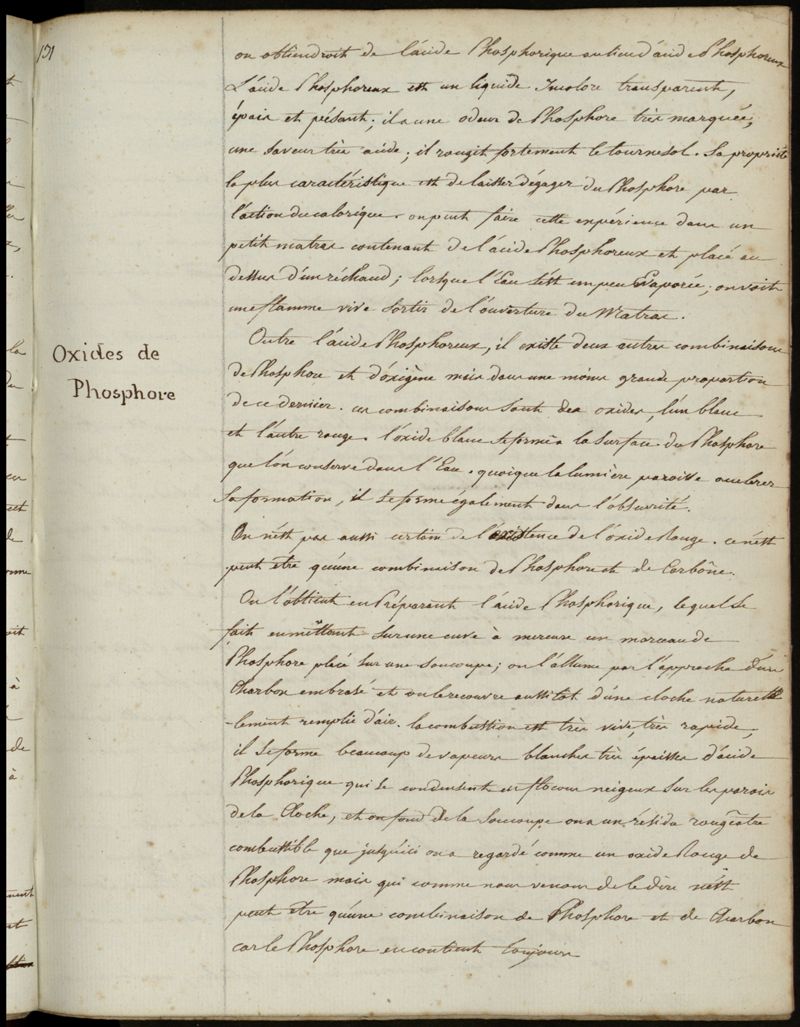 151
on obtiendroit de l'acide Phosphorique au lieu d'acide Phosphoreux
L'acide Phosphoreux est un liquide Incolore transparent,
épais et pésant; il a une odeur de Phosphore très marquée;
une saveur très acide; il rougit fortement le tournesol. Sa propriété
la plus caractéristique est de laisser dégager du Phosphore par
l'action du calorique. on peut faire cette expérience dans un
petit matras contenant de l'acide Phosphoreux et placé au
dessus d'un réchaud; lorsque l'Eau s'est un peu Evaporée; on voit
une flamme vive sortir de l'ouverture du Matras.
Oxides de
Phosphore
Outre l'acide Phosphoreux, il existe deux autres combinaisons
de Phosphore et d'óxigène mais dans une moins grande proportion
de ce dernier. ces combinaisons sont des oxides, l'un blanc
et l'autre rouge. l'oxide blanc se forme à la surface du Phosphore
que l'on conserve dans l'Eau. quoique la lumière paroisse accelerer
sa formation, il se forme également dans l'obscurité.
On n'est pas aussi certain de l'existence de l'oxide Rouge. ce n'est
peut être qu'une combinaison de Phosphore et de Carbône.
On l'obtient en Préparant l'acide Phosphorique, lequel se
fait en mettant sur une cuve à mercure un morceau de
Phosphore placé sur une soucoupe; on l'allume par l'approche d'un
Charbon embrasé et on le recouvre aussitôt d'une cloche naturel
-lement remplie d'air. la combustion est très vive, très rapide,
il se forme beaucoup de vapeurs blanches très épaisses d'acide
Phosphorique qui se condensent en flocons neigeux sur les parois
de la Cloche, et au fond de la Soucoupe on a un résidu rougeatre
combustible que jusqu'ici on a regardé comme un oxide Rouge de
Phosphore mais qui comme nous venons de le dire n'est
peut être qu'une combinaison de Phosphore et de Charbon
car le Phosphore en contient toujours